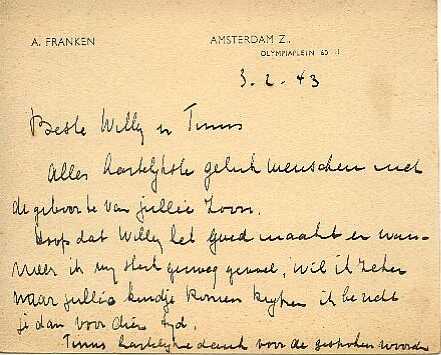 A. FRANKEN
AMSTERDAM Z.,
OLYMPIAPLEIN 60 I
3.2.43
Beste Willy en Tinus
Alles hartelijkste geluk menschen met
de geboorte van jullie Zoon.
Hoop dat Willy het goed maakt en wan-
neer ik mij sterk genoeg gevoel, wil ik zeker
naar jullie kindje komen kijken ik bericht
je dan voor dien tijd.
Tinus hartelijke dank voor de gesproken woorden